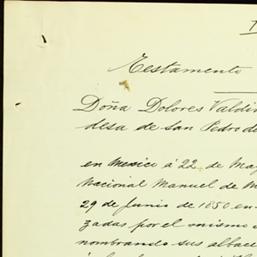 Testamento
Doña Dolores Valdi
desa de San Pedro de
en Mexico á 22 de Ma
Nacional Manuel de M
29 de Junio de 1850 en
zadas por el mismo
nombrando sus albace